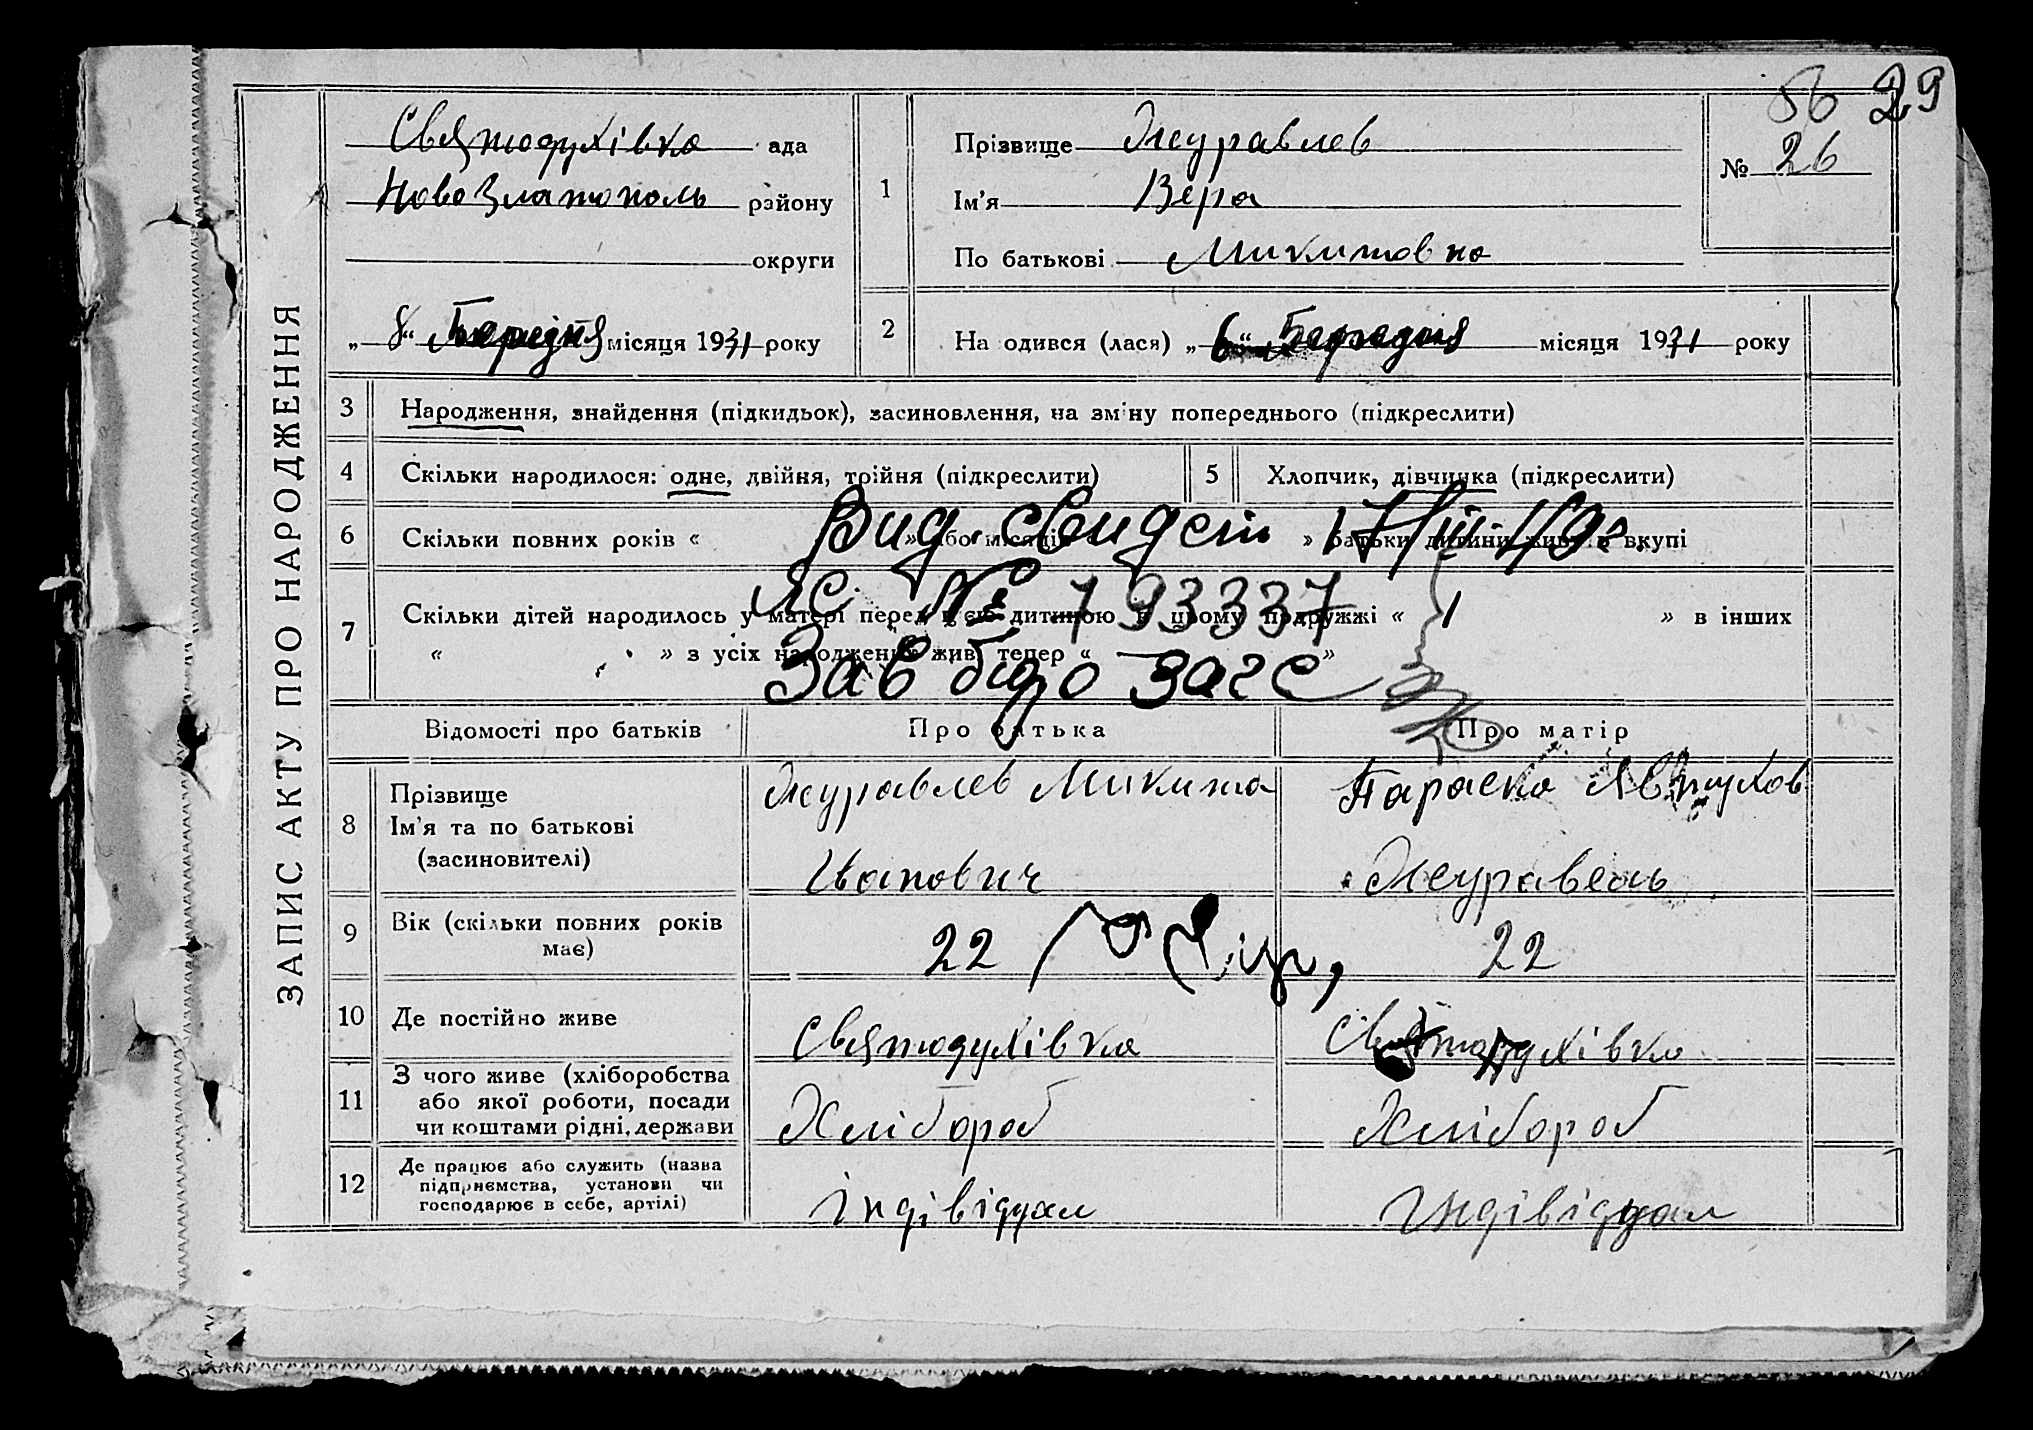 56 29
№ 26
ЗАПИС АКТУ ПРО НАРОДЖЕННЯ
Святодухівка ада
Ново Златополь району
округи
„ 8 “ місяця 1931 року
1
Прізвище Журавлев
Ім'я Вера
По батькові Микитовна
2
На одився (лася) „ 6 “ місяця 1931 року
3 Народження, знайдення (підкидьок), засиновлення, на зміну попереднього (підкреслити)
4 Скільки народилося: одне, двійня, трійня (підкреслити) 5 Хлопчик, дівчинка (підкреслити)
Выд. свидет 17/III-49г.
6 Скільки повних років « » або місяців » батьки дитини живуть вкупі
ЯС № 193337
7 Скільки дітей народилось у матері перед цією дитиною в цьому подружжі « 1 » в інших
« » з усіх народжених живі тепер « — »
Зав бюро Загс
Відомості про батьків Про батька Про матір
8 Прізвище Ім'я та по батькові (засиновителі)
Журавлев Микита
Иванович
Параска Явтухов
Журавель
9 Вік (скільки повних років має) 22 22
10 Де постійно живе Святодухівка Святодухівка
11 З чого живе (хліборобства
або якої роботи, посади
чи коштами рідні, держави
Хлібороб Хлібороб
12 Де працює або служить (назва
підприємства, установи чи
господарює в себе, артілі)
індівідуал індівідуал